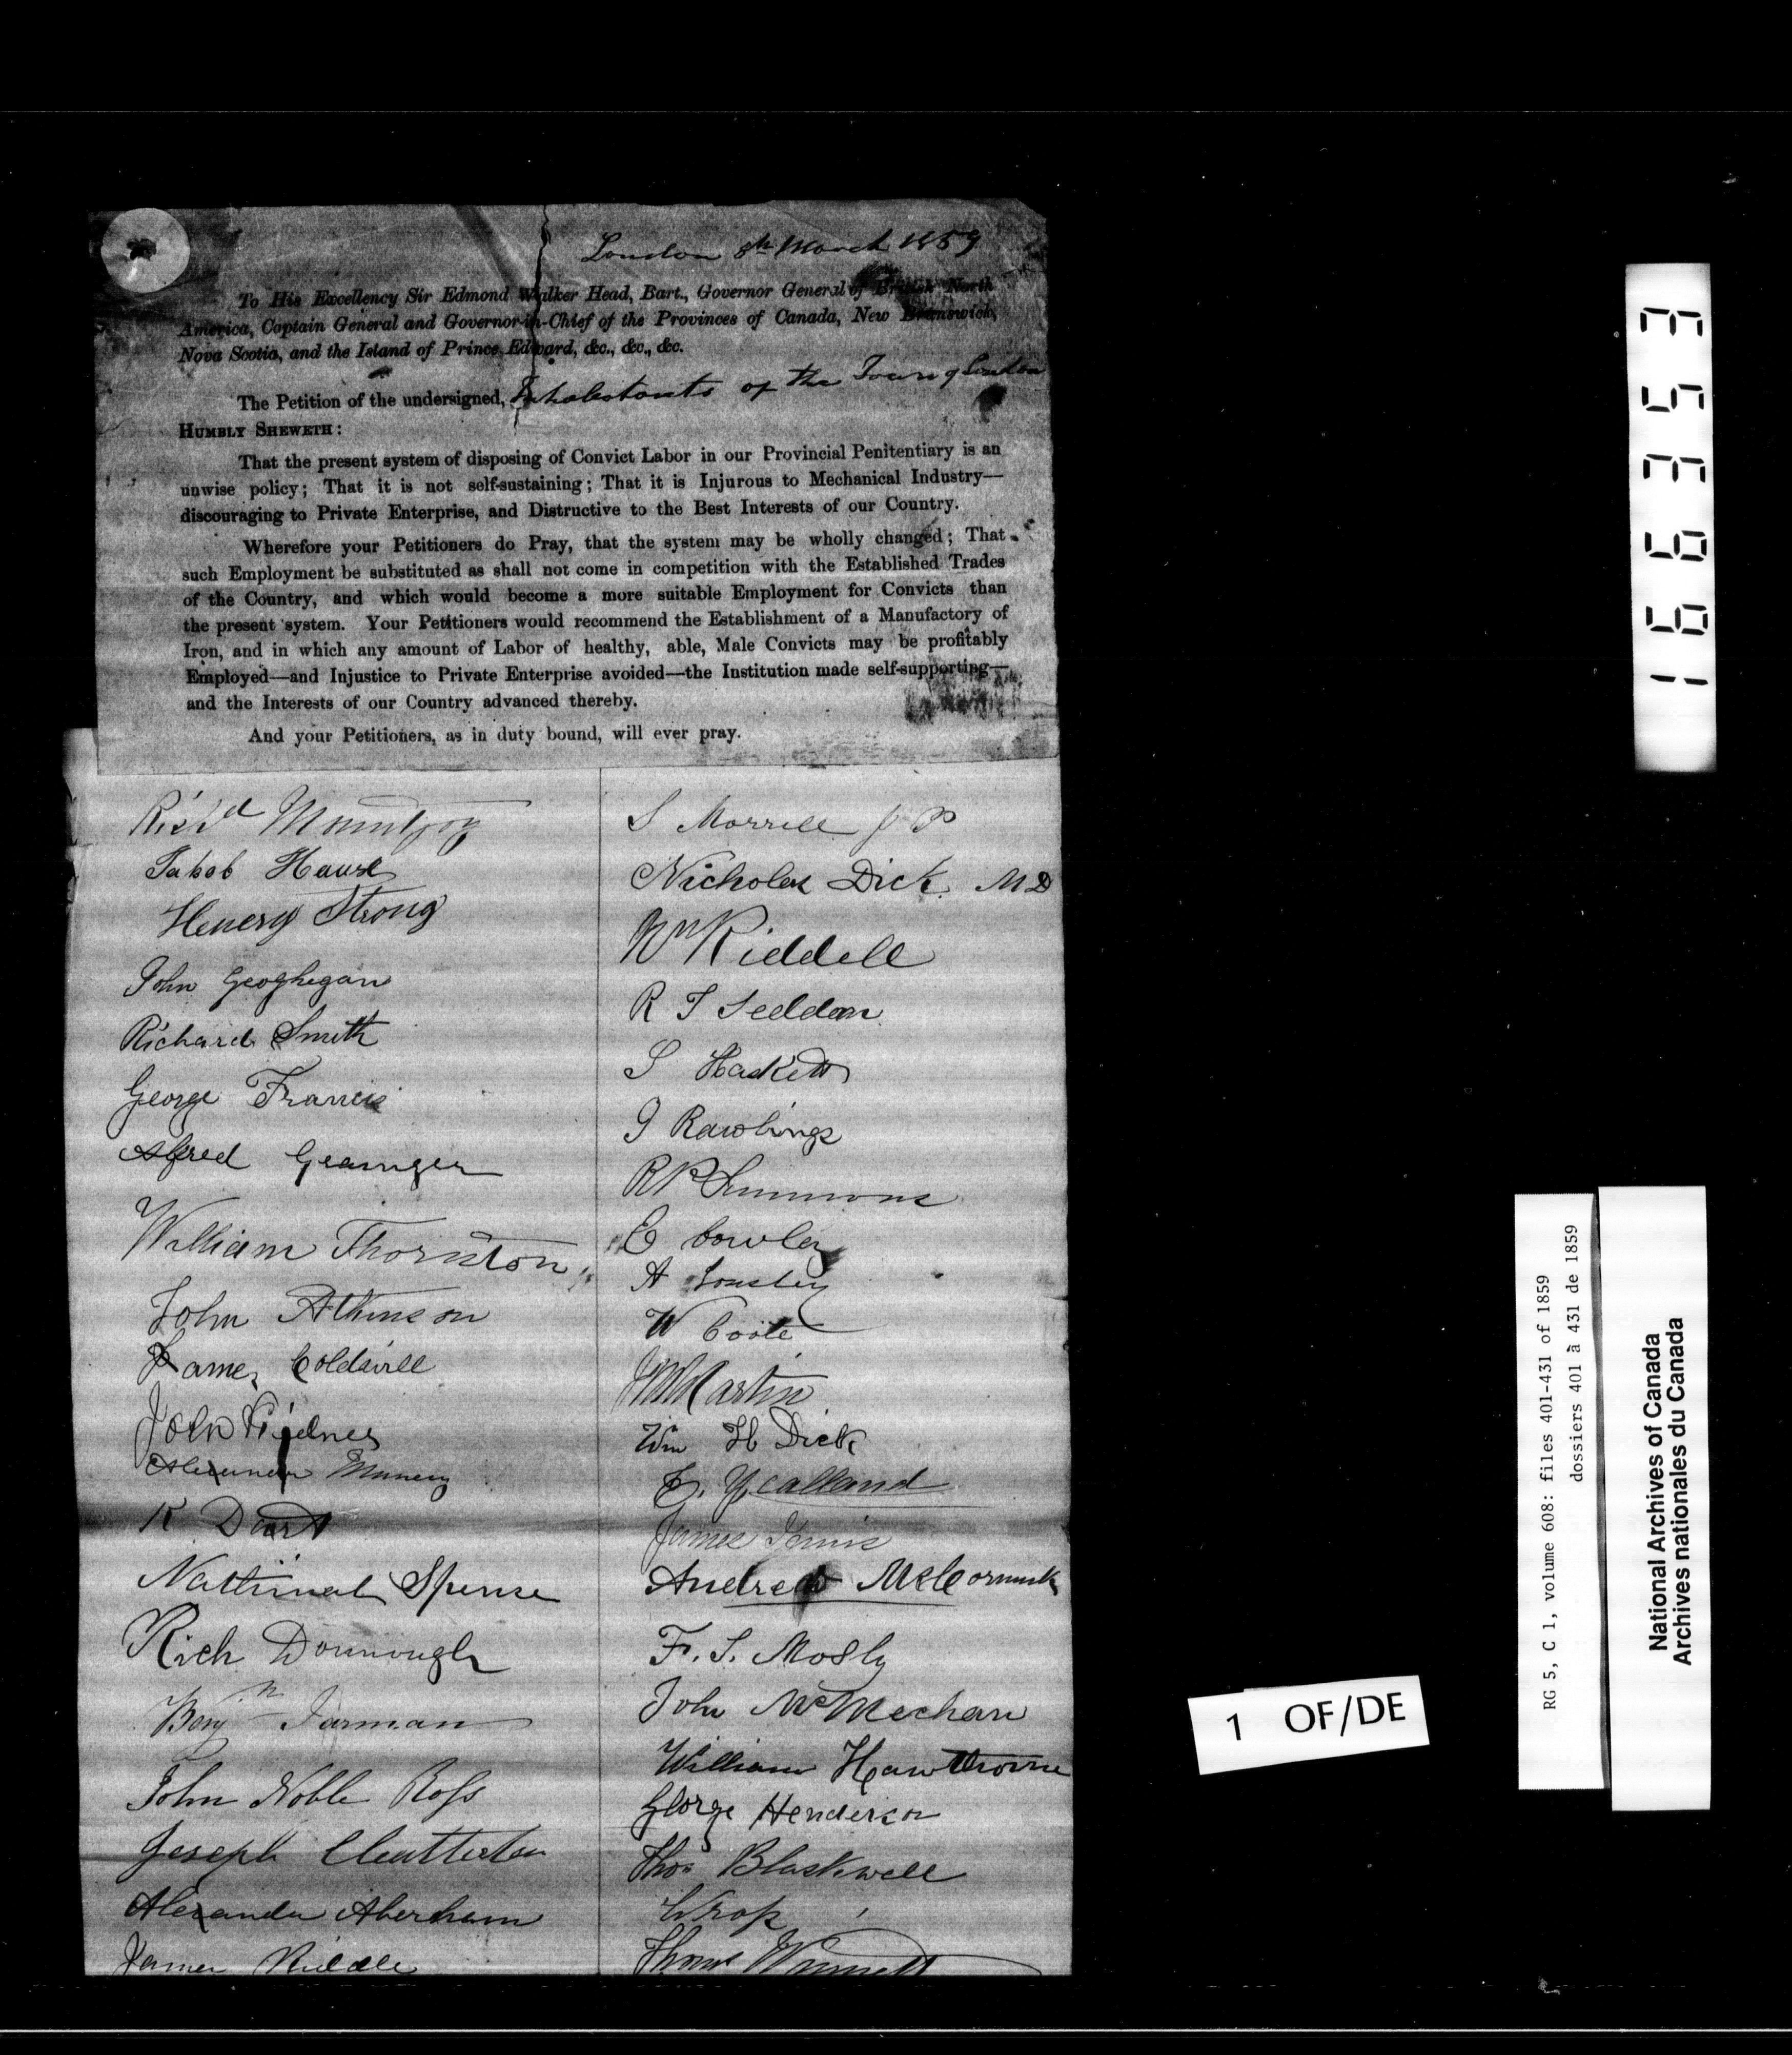 London 8th March 1859
To His Excellency Sir Edmond Walker Head, Bart., Governor General of British North
America, Captain General and Governor-in-Chief of the Provinces of Canada, New Brunswick,
Nova Scotia, and the Island of Prince Edward, &c., &c., &c.
The Petition of the undersigned, Inhabitants of the Town of London
HUMBLY SHEWETH:
That the present system of disposing of Convict Labor in our Provincial Penitentiary is an
unwise policy; That it is not self-sustaining; That it is Injurous to Mechanical Industry—
discouraging to Private Enterprise, and Distructive to the Best Interests of our Country.
Wherefore your Petitioners do Pray, that the system may be wholly changed; That
such Employment be substituted as shall not come in competition with the Established Trades
of the Country, and which would become a more suitable Employment for Convicts than
the present system. Your Petitioners would recommend the Establishment of a Manufactory of
Iron, and in which any amount of Labor of healthy, able, Male Convicts may be profitably
Employed—and Injustice to Private Enterprise avoided—the Institution made self-supporting—
and the Interests of our Country advanced thereby.
And your Petitioners, as in duty bound, will ever pray.
Ric'd Mountjoy
Jakob Hause
Henery Strong
John Geoghegan
Richard Smith
George Francis
Alfred Grainger
William Thornton
John Atkinson
James
John
Alexander
K Dart
Spence
Rich Donnough
Benj'n Jarman
John Noble Ross
Joseph Chatterton
Alexander Aberham
James Riddle
S Morrell J P
Nicholas Dick M D
Wm Riddell
R T Seddon
S Hackett
J Rawlings
R P Simmons
E Cowley
A
W Coote
Martin
Wm H Dick
James
Andrew McCormick
F. S. Mosly
John McMechan
William Hawthorne
George Henderson
Thos Blackwell
Thomas Winnett
166353
RG 5, C 1, volume 608: files 401-431 of 1859
dossiers 401 à 431 de 1859
National Archives of Canada
Archives nationales du Canada
1 OF/DE